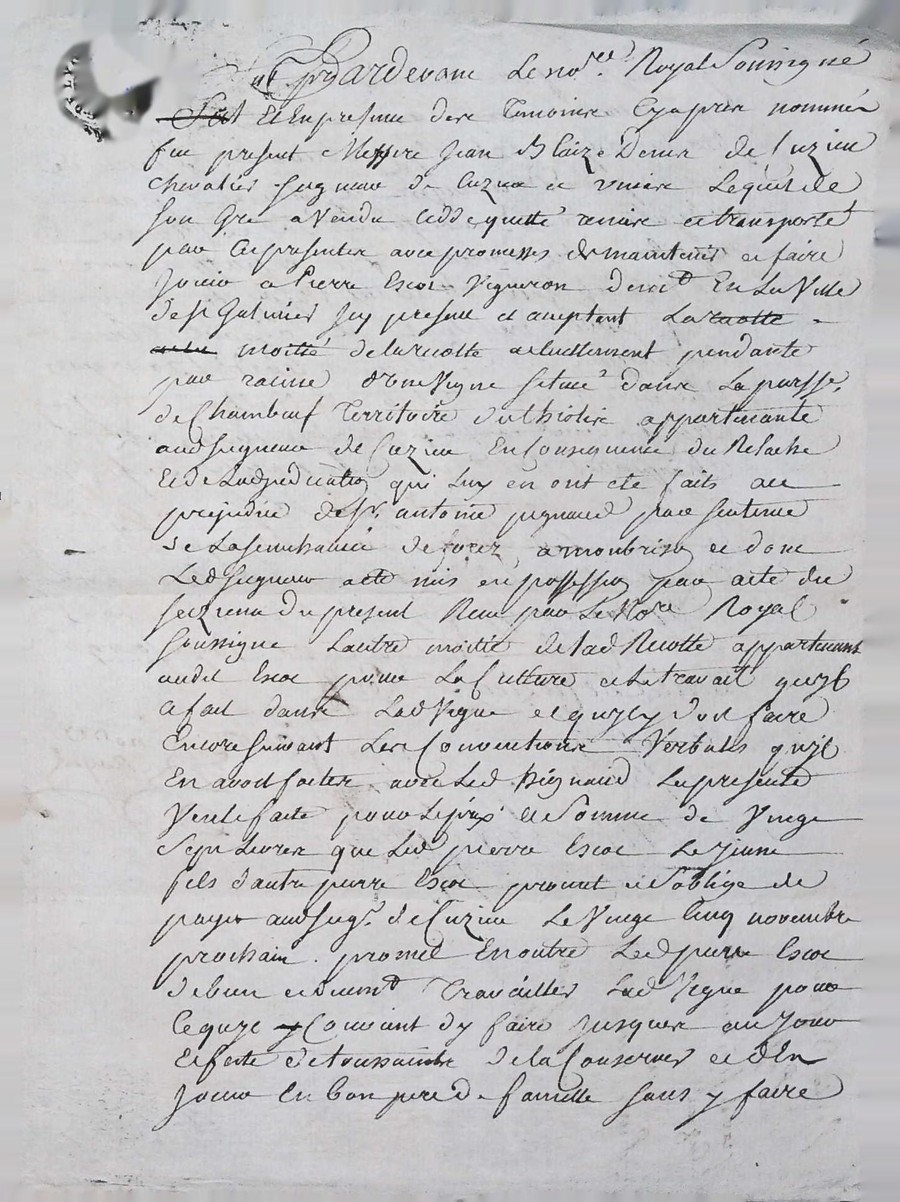 Pardevant Le no.re Royal Soussigné
Et En presence des Temoins Cy apres nommés
fut present Messire Jean Blaize Denis de Cuzieu
chevalier seigneur de Cuzieu et Lequel de
son Gré a Vendu Cedde quitte remis et transporté
par Ces presentes avec promesses de maintenir et faire
Jouir a Pierre Escot Vigneron demt En La Ville
de st Galmier Icy present et acceptant La recolte
moitié de la recolte actuellement pendante
par racine d'une Vigne située dans La parsse
de Chambeuf Territoire du appartenante
aud seigneur de Cuzieu En Consequence du Relache
Et de Ladjudication qui Luy en ont eté faits au
prejudice de sr antoine pignaud par sentence
de La senechaussée de forez a monbrison et dont
Led seigneur a eté mis en possession par acte du
seizieme du present Receu par Le No.re Royal
soussigne Lautre moitié de lad Recolte appartenant
audit Escot pour La Culture et Le travail quyl
a fait dans Lad Vigne et quyl y doit faire
Encore suivant Les Conventions Verbales quyl
En avoit faites avec Led Pignaud La presente
Vente faite pour Le prix et Somme de Vingt
Sept Livres que Led pierre Escot Le Jeune
fils d'autre pierre Escot promet et s'oblige de
payer aud seigr de Cuzieu Le Vingt Cinq novembre
prochain . promet En outre Led pierre Escot
de bien et deument Travailler Lad Vigne pour
Ce quyl Convient d'y faire Jusques au Jour
Et feste de toussaints de la Conserver et d'En
Jouir En bon pere de famille sans y faire